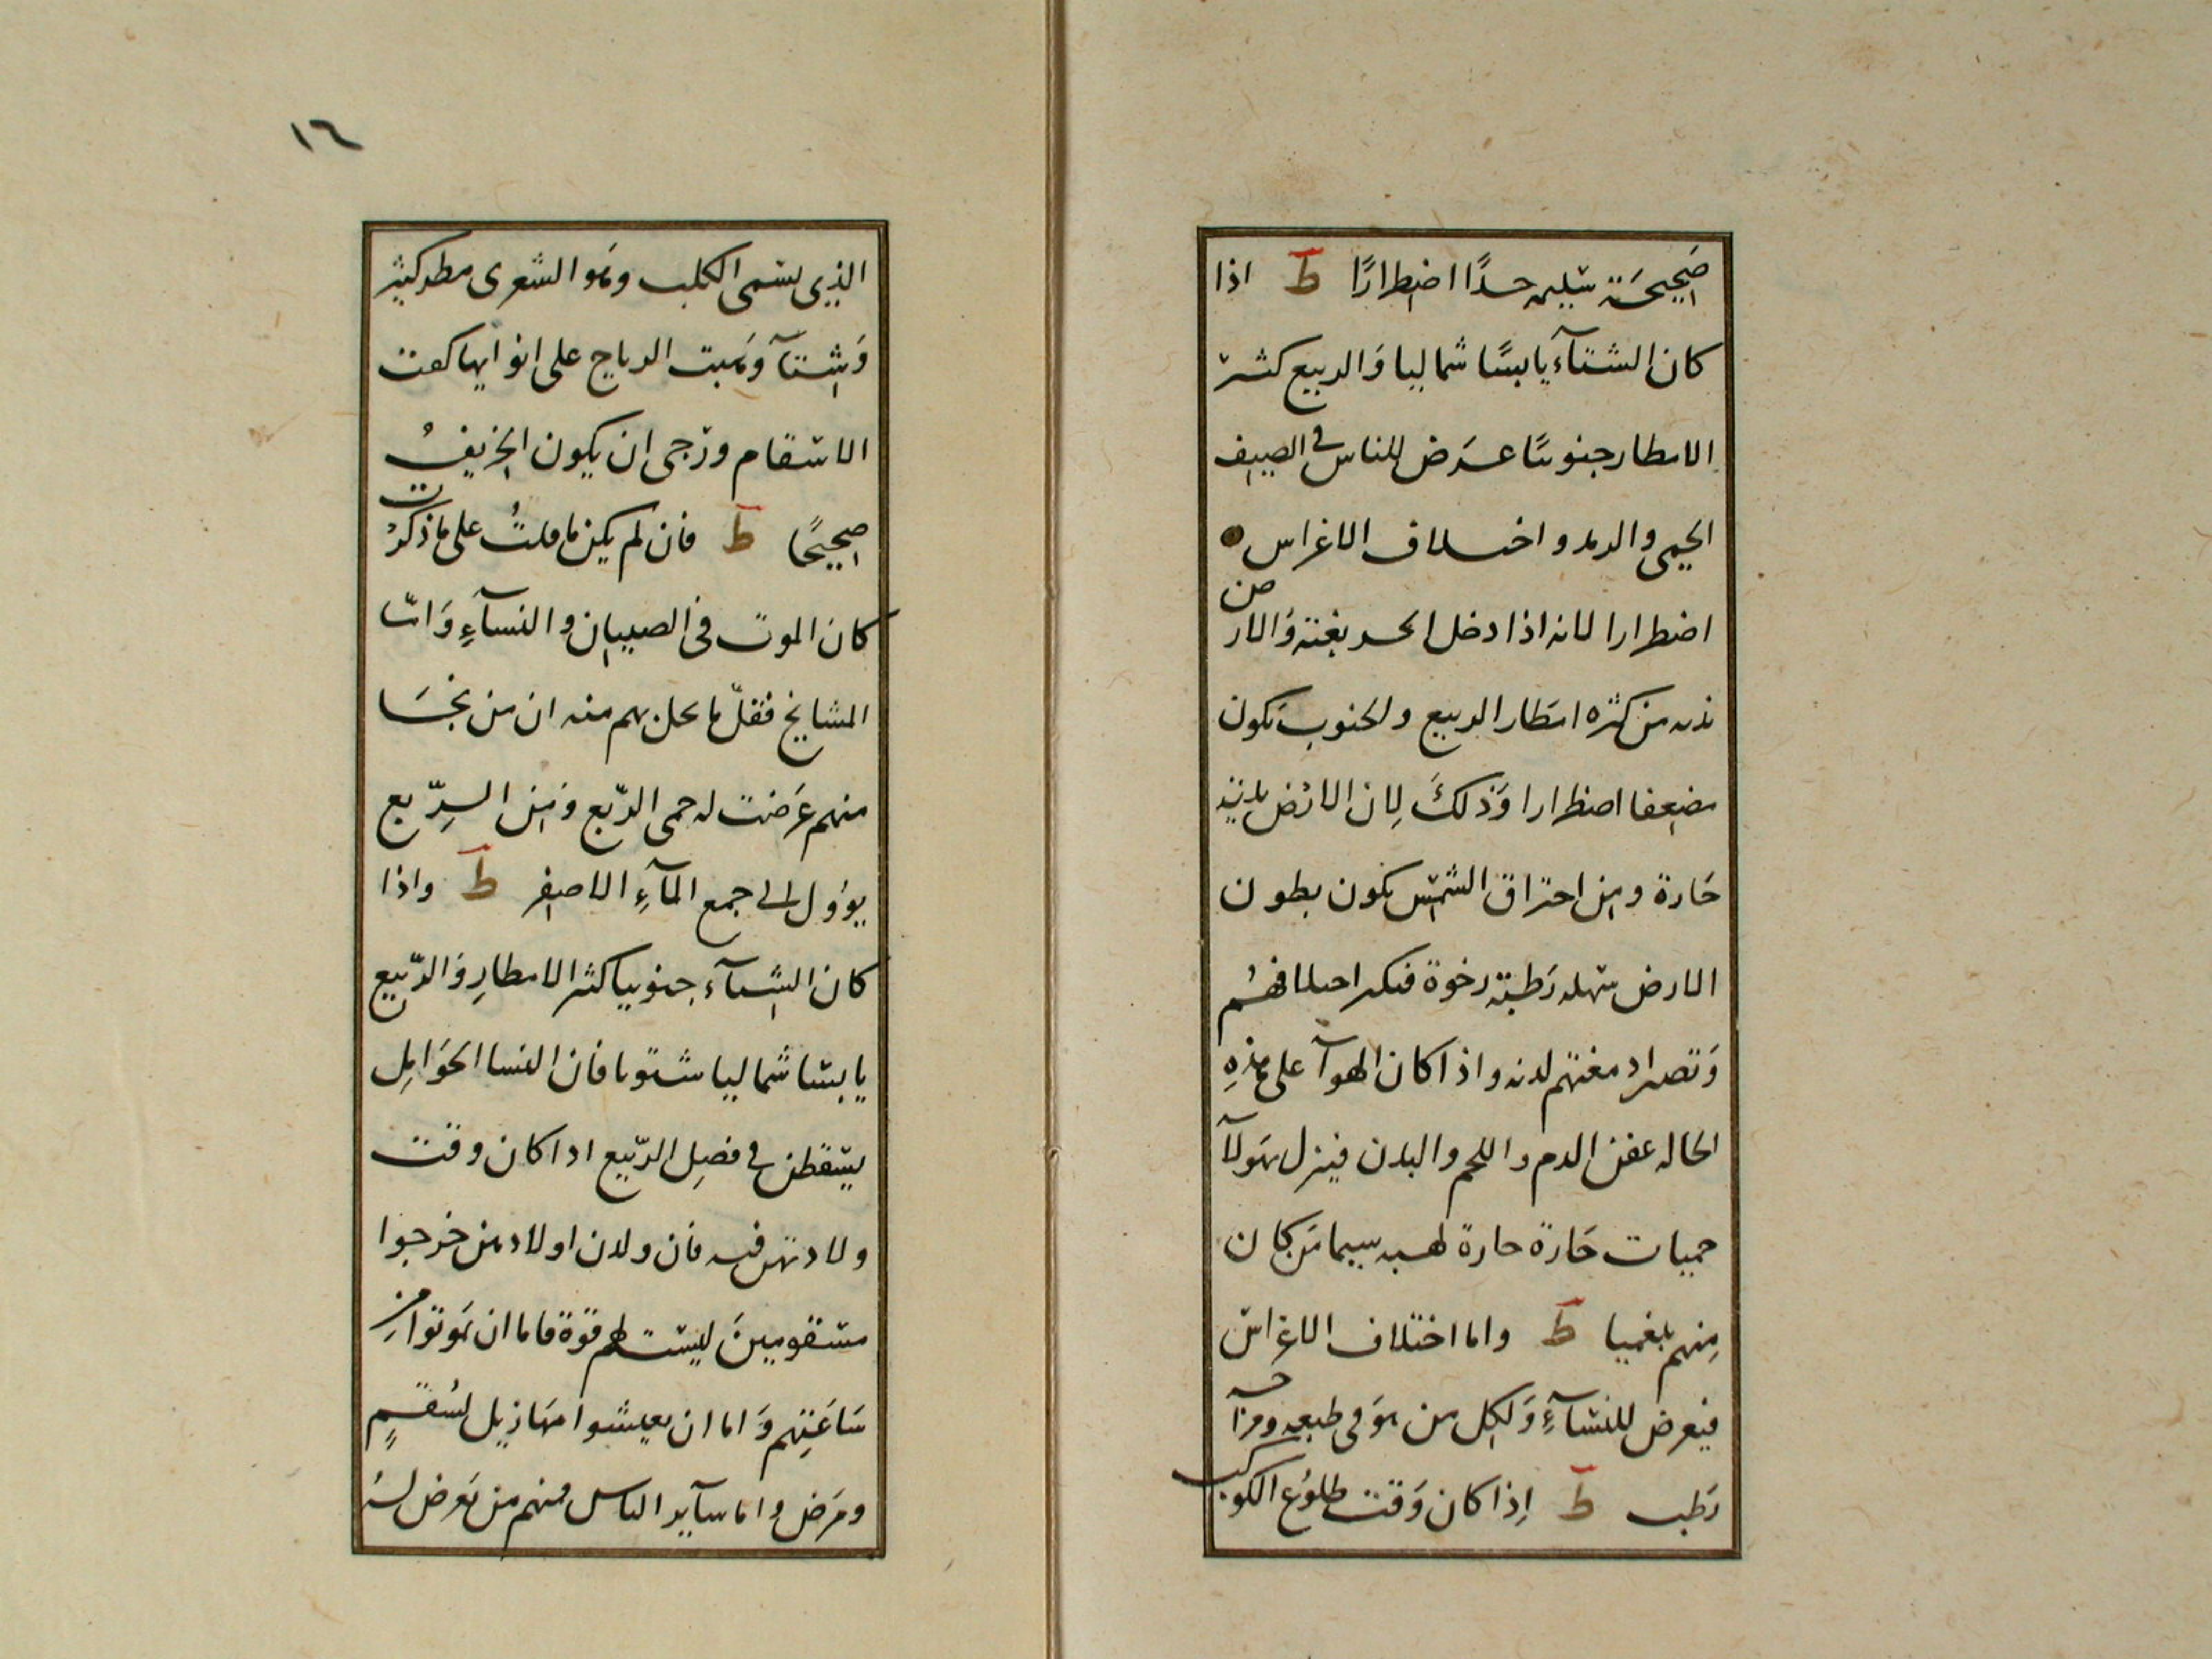 صَحِيحَة سَليمه جدًا اضطرارًا ط اذا
كان الشتآء يابسًا شماليا وَالربيع كثير
الامطار جنوبيًا عرَض للناس في الصيف
الحمى والرمد واختلاف الاغراس
اضطرارا لانه اذا دخل الحر بغتة وَالارض
نديه من كثره امطار الربيع والجنوب تكون
مضعفا اضطرارا وَذلكَ لِان الارْض نديَه
حَارة ومن احتراق الشمس تكون بطون
الارض سهله رَطبة رخوة فيكثر اختلافهم
وَتصير ادمغتهم لدنه واذا كان الهوآ على هذِهِ
الحاله عفن الدم واللحم والبدن فينزل بهَولآ
حميات حَارة حادة لهبه سيما مَن كان
مِنهم بلغميا ط واما اختلاف الاغراس
فيعرض للنسَآءِ وَلكل من هوَ في طبعه ومزاجه
رَطب ط اِذا كان وَقت طلوُع الكوكب
١٦
الذِي يسَمى الكلب وهَو الشعرى مطر كثير
وَشتآ وَهَبت الرياح على انوايها كفت
الاسقام ورَجى ان يكون الخريفُ
صحيحًا ط فان لم يكن ما قلتُ على ما ذكرْت
كان الموت فى الصبيان والنسآءِ وَامّا
المشايخ فقلّ ما يحل بهم منه ان من نجَا
منهم عَرَضت له حمى الرّبع وَمِن الرِّبع
يوؤل الى جمع المآءِ الاصفر ط واذا
كان الشتآء جنوبيا كثير الامطارِ وَالرّبيع
يابسا شماليا شتويا فان النسا الحوَامِل
يسَقطن في فصِل الرّبيع اذا كان وقت
ولادتهن فيه فان ولدن اولادهن خرجوا
مسَقومِينَ ليسَت لهم قوّة فاما ان يَموتوا من
سَاعَتِهم وَاما ان يعيشوا مهَازيل لسُقمٍ
ومرَض واما سآير الناس فمنهم من يَعرض لهُ